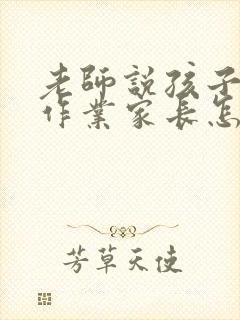 老師説孩子
作業家長怎
芳草天使